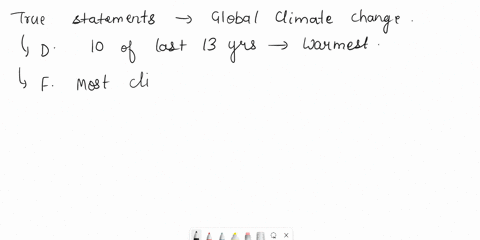 True statements → Global Climate change.
↳ D. 10 of last 13 yrs → Warmest.
↳ F. Most cli